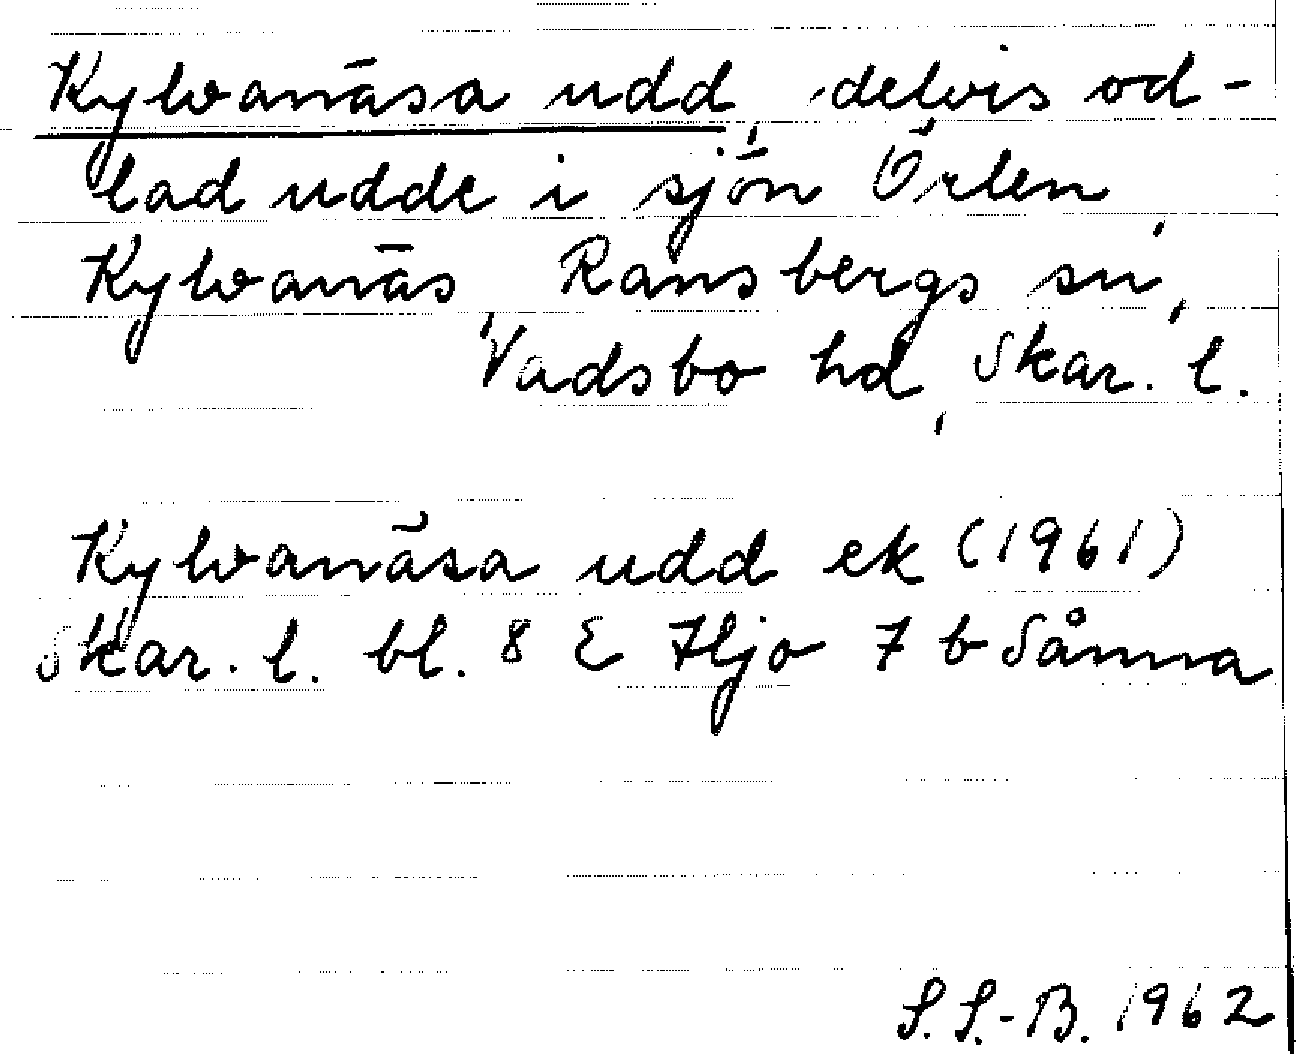 Kylvanäsa udd, delvis od-
lad udde i sjön Örlen,
Kylvanäs, Ransbergs sn,
Vadsbo hd, Skar. l.
Kylvanäsa udd ek (1961)
Skar. l. bl. 8 E Hjo 7 b Sånna
S. S.-B. 1962